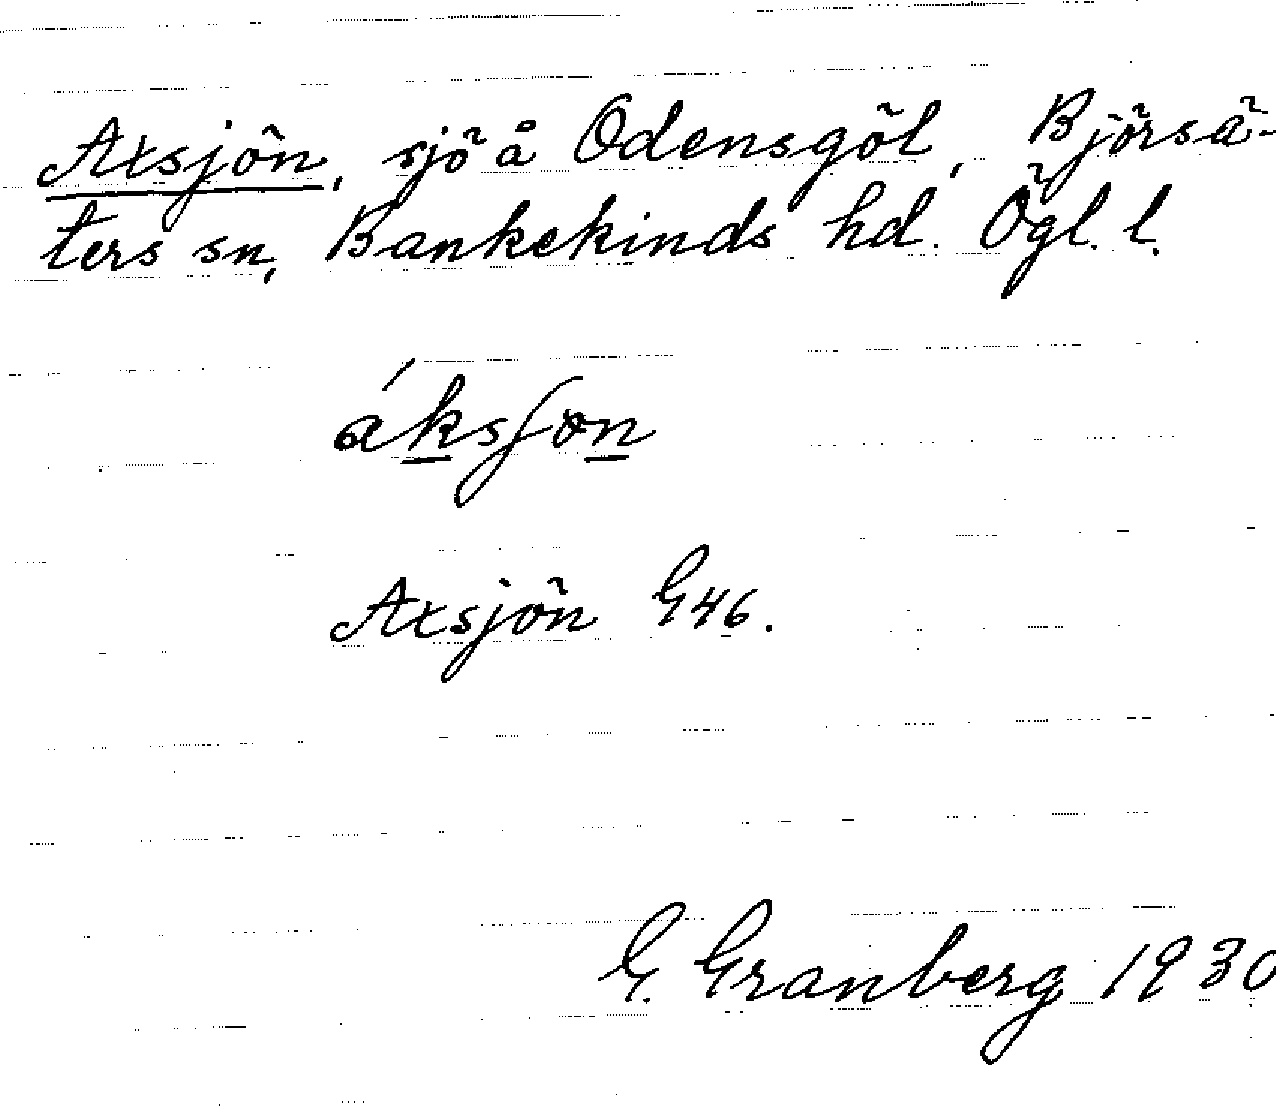 Axsjön, sjö å Odensgöl, Björsä-
ters sn, Bankekinds hd. Ögl. l.
áksʃøn
Axsjön G46.
G. Granberg 1930